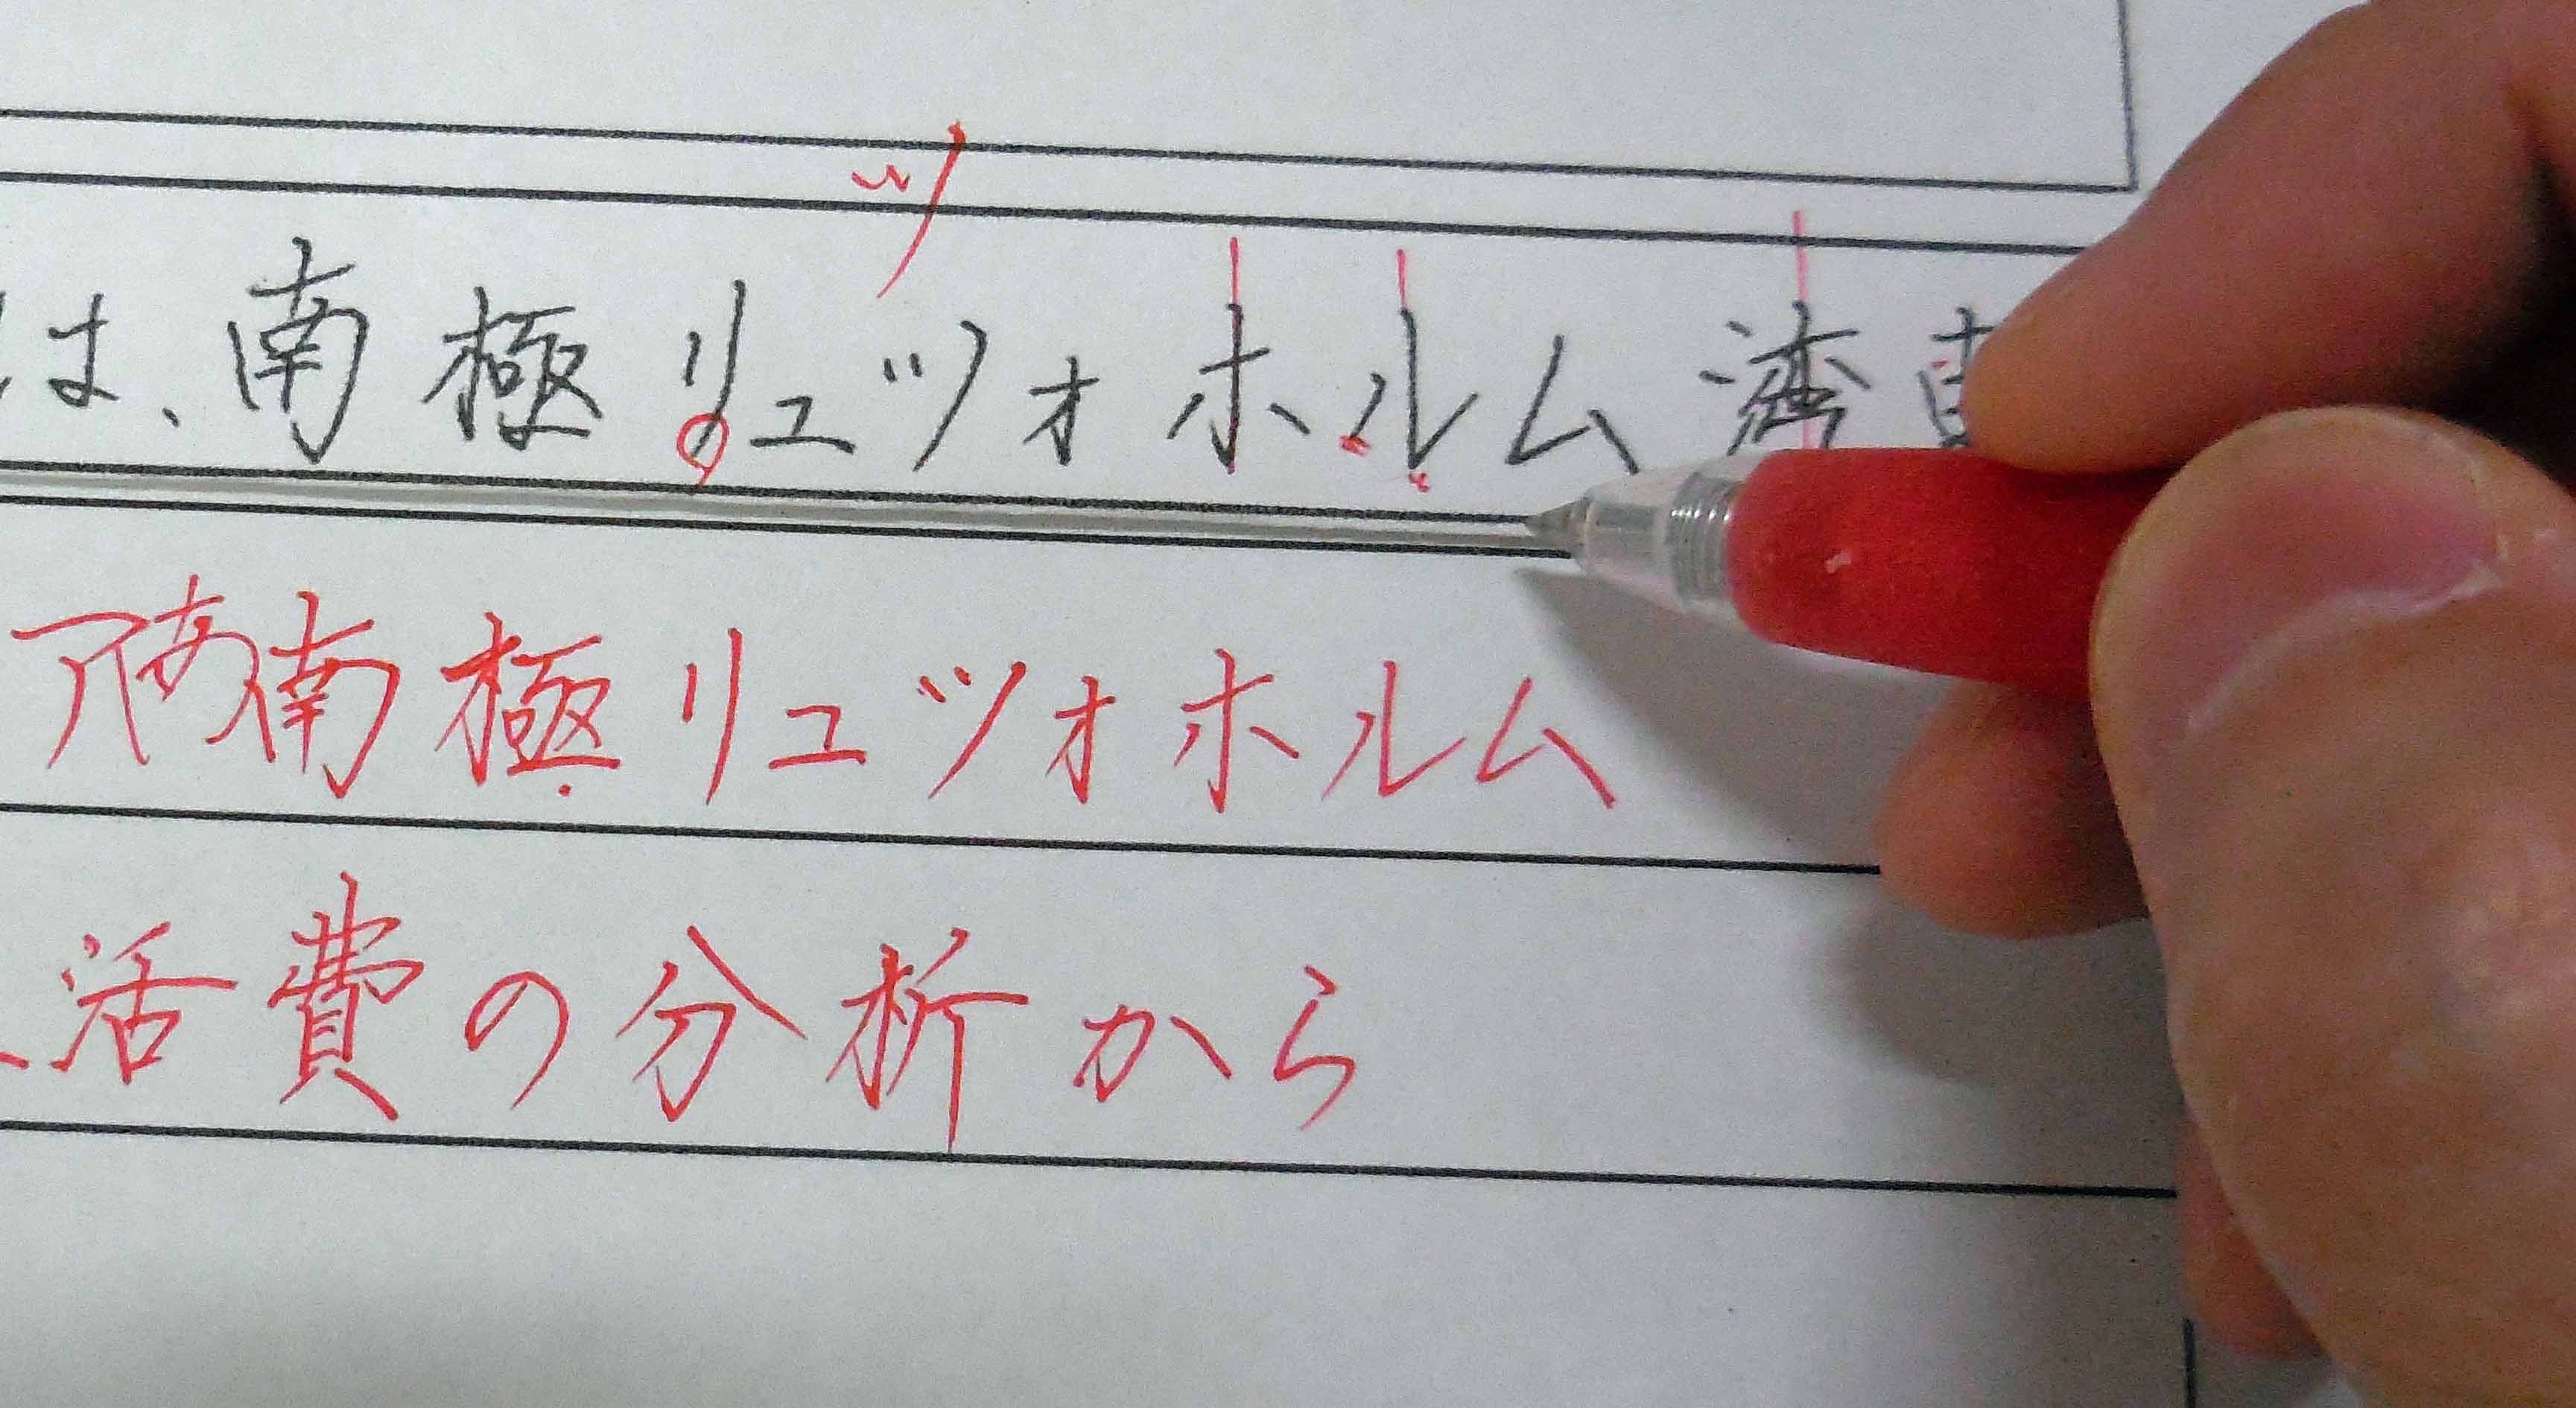 ツ
は、南極リュツォホルム湾
南極リュツォホルム
活費の分析から